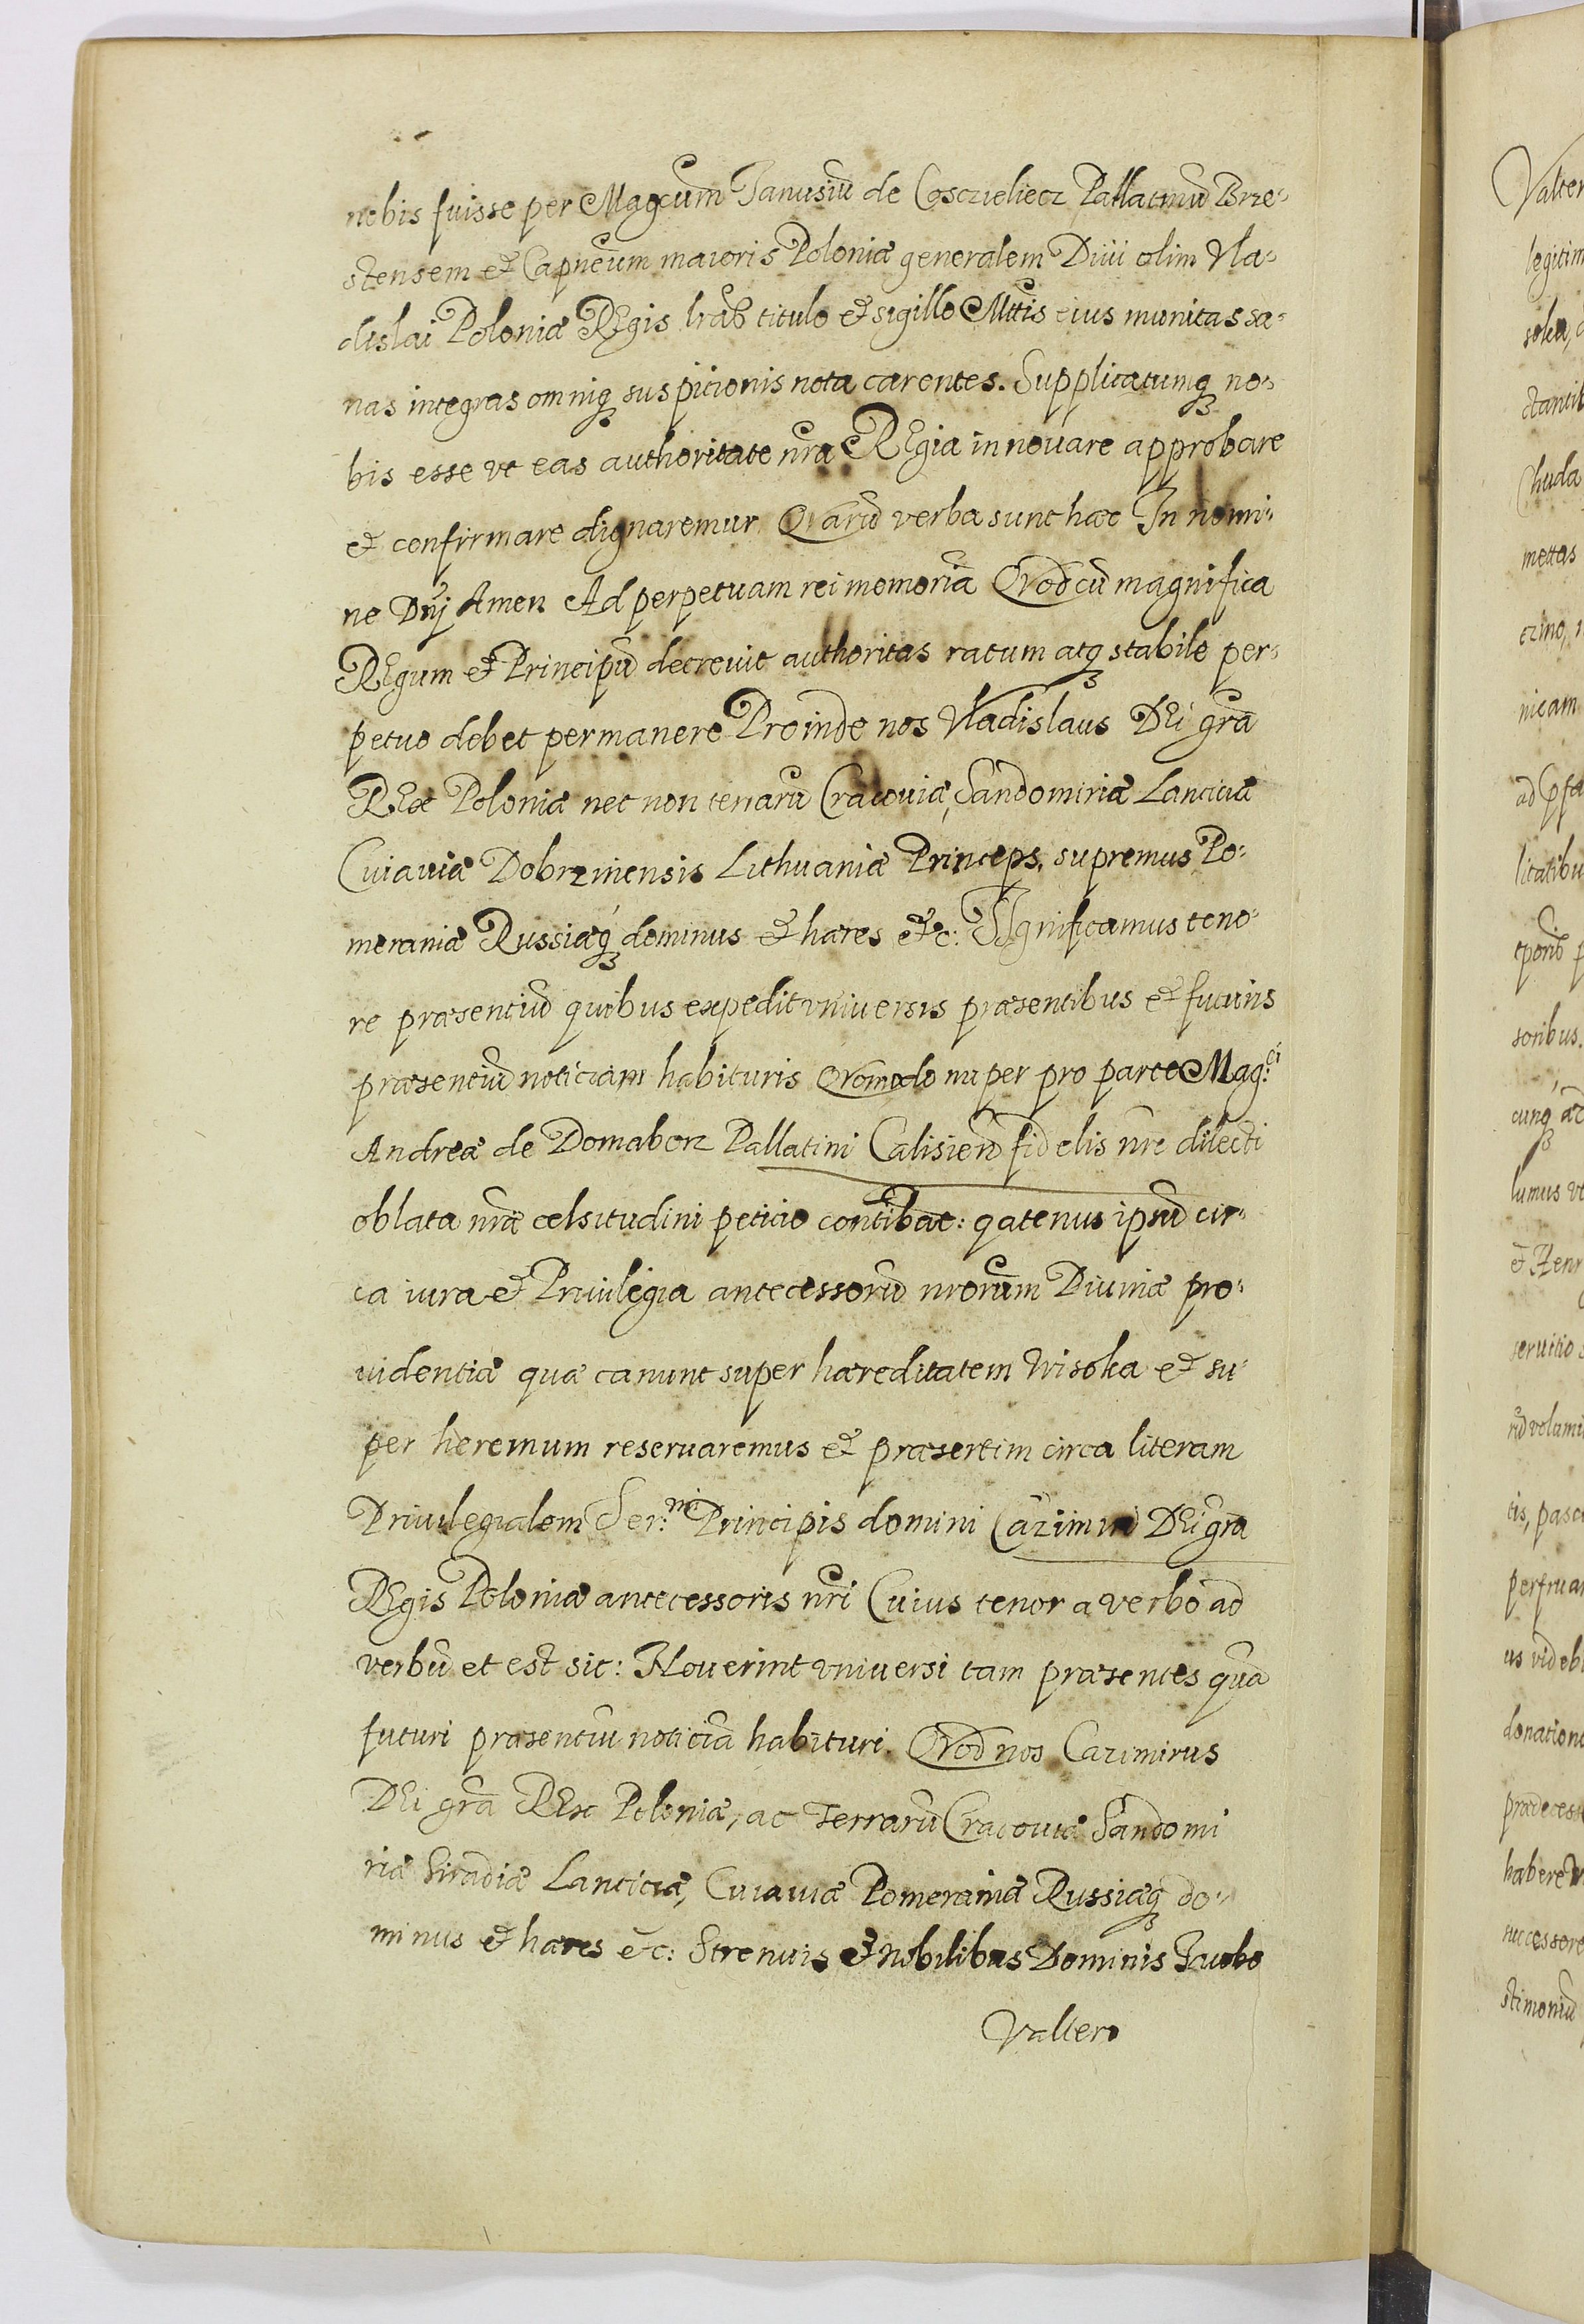 nobis fuisse per Magcum Janusiũ de Cosczieliecz Pallatinũ Brze-
stensem et Capneum maioris Poloniæ generalem Diui olim Vla-
dislai Poloniæ REgis lrãs titulo et sigillo Mttis eius munitas sa-
nas integras omniq̃ suspicionis nota carentes. Supplicatumq̃ no-
bis esse vt eas authoritate nra REgia innouare approbare
et confirmare dignaremur Qvarũ verba sunt hæc In nomi-
ne Dnj Amen Ad perpetuam rei memoriã Qvod cũ magnifica
REgum et Principũ decreuit authoritas ratum atq̃ stabile per-
petuo debet permanere Proinde nos Vladislaus DEi grã
REx Poloniæ nec non terrarũ Cracouiæ, Sandomiriæ Lanciciæ
Cuiauiæ Dobrzinensis Lithuaniæ Princeps, supremus Po-
meraniæ Russiæq̃ dominus et hæres etc: SIgnificamus teno-
re præsentiũ quibus expedit vniuersis præsentibus et futuris
præsentiũ noticiam habituris Qvomodo nuper pro parte Mag:ci
Andreæ de Domaborz Pallatini Calisieñ fidelis nre dilecti
oblata nræ celsitudini peticio contibat: qatenus ipsũ cir-
ca iura et Priuilegia antecessorũ nrorum Diuinæ pro-
uidentiæ quæ canunt super hæreditatem Wisoka et su-
per heremum reseruaremus et præsertim circa literam
Priuilegialem Ser:mi Principis domini Cazimiri DEi grã
REgis Poloniæ antecessoris nri Cuius tenor a verbo ad
verbũ et est sic: Nouerint vniuersi tam præsentes quã
futuri præsentiũ noticiã habituri. Qvod nos Cazimirus
DEi grã REx Poloniæ, ac Terrarũ Cracouiæ Sandomi
riæ Siradiæ Lanciciæ, Cuiauiæ Pomeraniæ Russiæq̃ do-
minus et hæres etc: Strenuis et Nobilibus Dominis Jacobo
Valtero